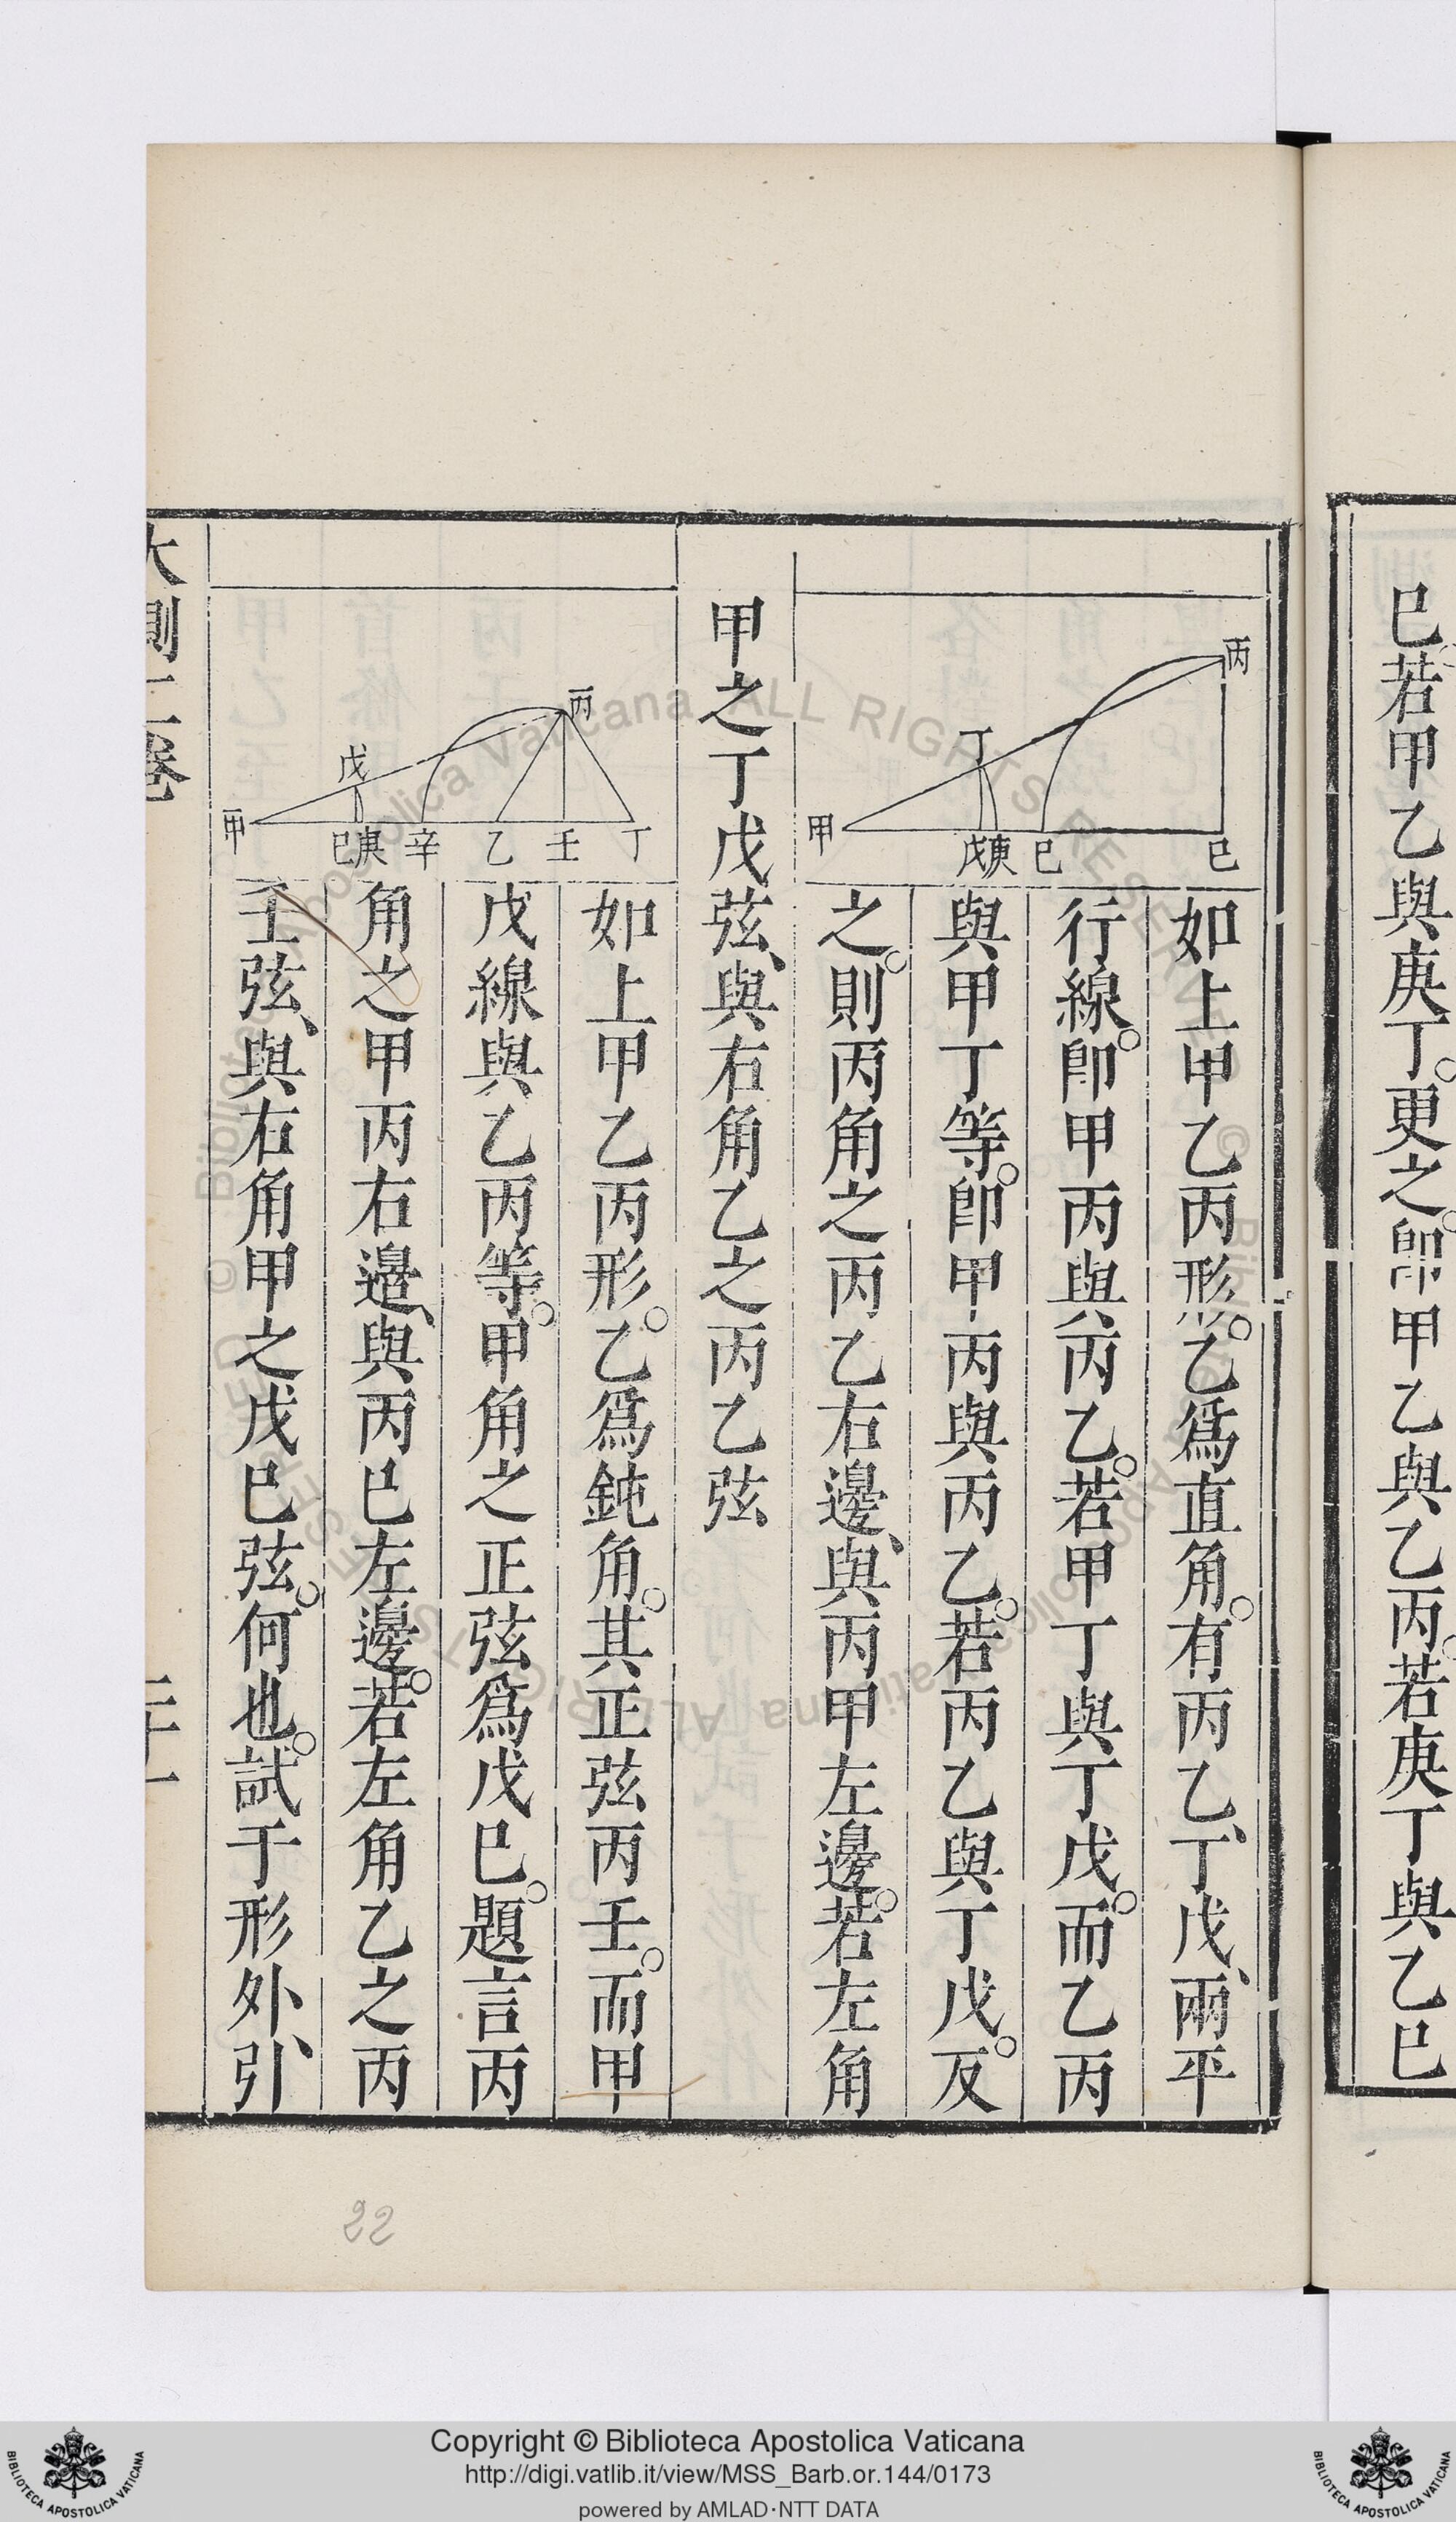 巳。若甲乙與庚丁。更之。卽甲乙與乙丙。若庚丁與乙巳
丙
丁
甲
戊庚
巳
巳
如上甲乙丙形。乙爲直角。有丙乙、丁戊、兩平
行線。卽甲丙與丙乙。若甲丁與丁戊。而乙丙
與甲丁等。卽甲丙與丙乙。若丙乙與丁戊。反
之。則丙角之丙乙右邊、與丙甲左邊。若左角
甲之丁戊弦、與右角乙之丙乙弦
丙
戊
甲
巳庚
辛
乙
壬
丁
如上甲乙丙形。乙爲鈍角。其正弦丙壬。而甲
戊線與乙丙等。甲角之正弦爲戊巳。題言丙
角之甲丙右邊、與丙巳左邊。若左角乙之丙
壬弦、與右角甲之戊巳弦。何也。試于形外、引
大測二卷
二十一
22
Biblioteca Apostolica Vaticana ALL RIGHTS RESERVED ©
Copyright © Biblioteca Apostolica Vaticana
http://digi.vatlib.it/view/MSS_Barb.or.144/0173
powered by AMLAD·NTT DATA
BIBLIOTECA APOSTOLICA VATICANA
BIBLIOTECA APOSTOLICA VATICANA